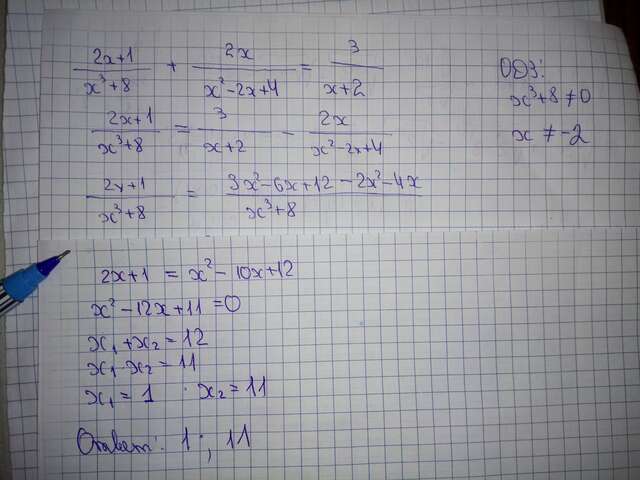 (2x+1)/(x³+8) + 2x/(x²-2x+4) = 3/(x+2)
ОДЗ:
x³+8≠0
x≠-2
(2x+1)/(x³+8) = 3/(x+2) - 2x/(x²-2x+4)
(2x+1)/(x³+8) = (3x²-6x+12-2x²-4x)/(x³+8)
2x+1 = x²-10x+12
x²-12x+11=0
x₁+x₂=12
x₁·x₂=11
x₁=1 . x₂=11
Ответ: 1; 11